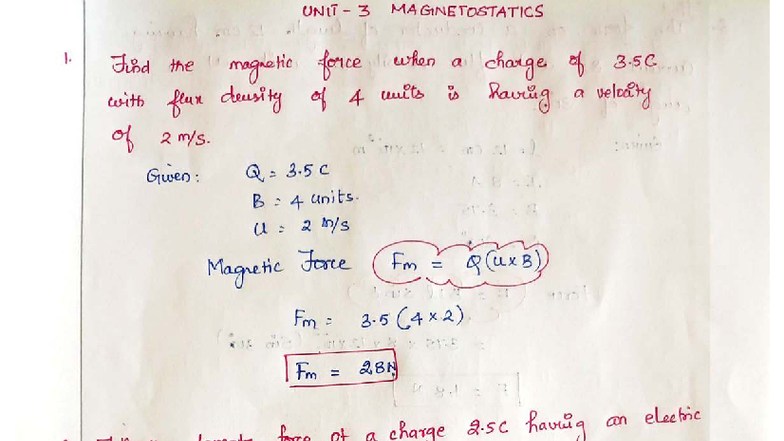 UNIT - 3 MAGNETOSTATICS
1. Find the magnetic force when a charge of 3.5C
with flux density of 4 units is having a velocity
of 2 m/s.
Given: Q = 3.5 C
B = 4 units.
U = 2 m/s
Magnetic Force Fm = Q(U x B)
Fm = 3.5 (4 x 2)
Fm = 28N
force of a charge 2.5C having an electric